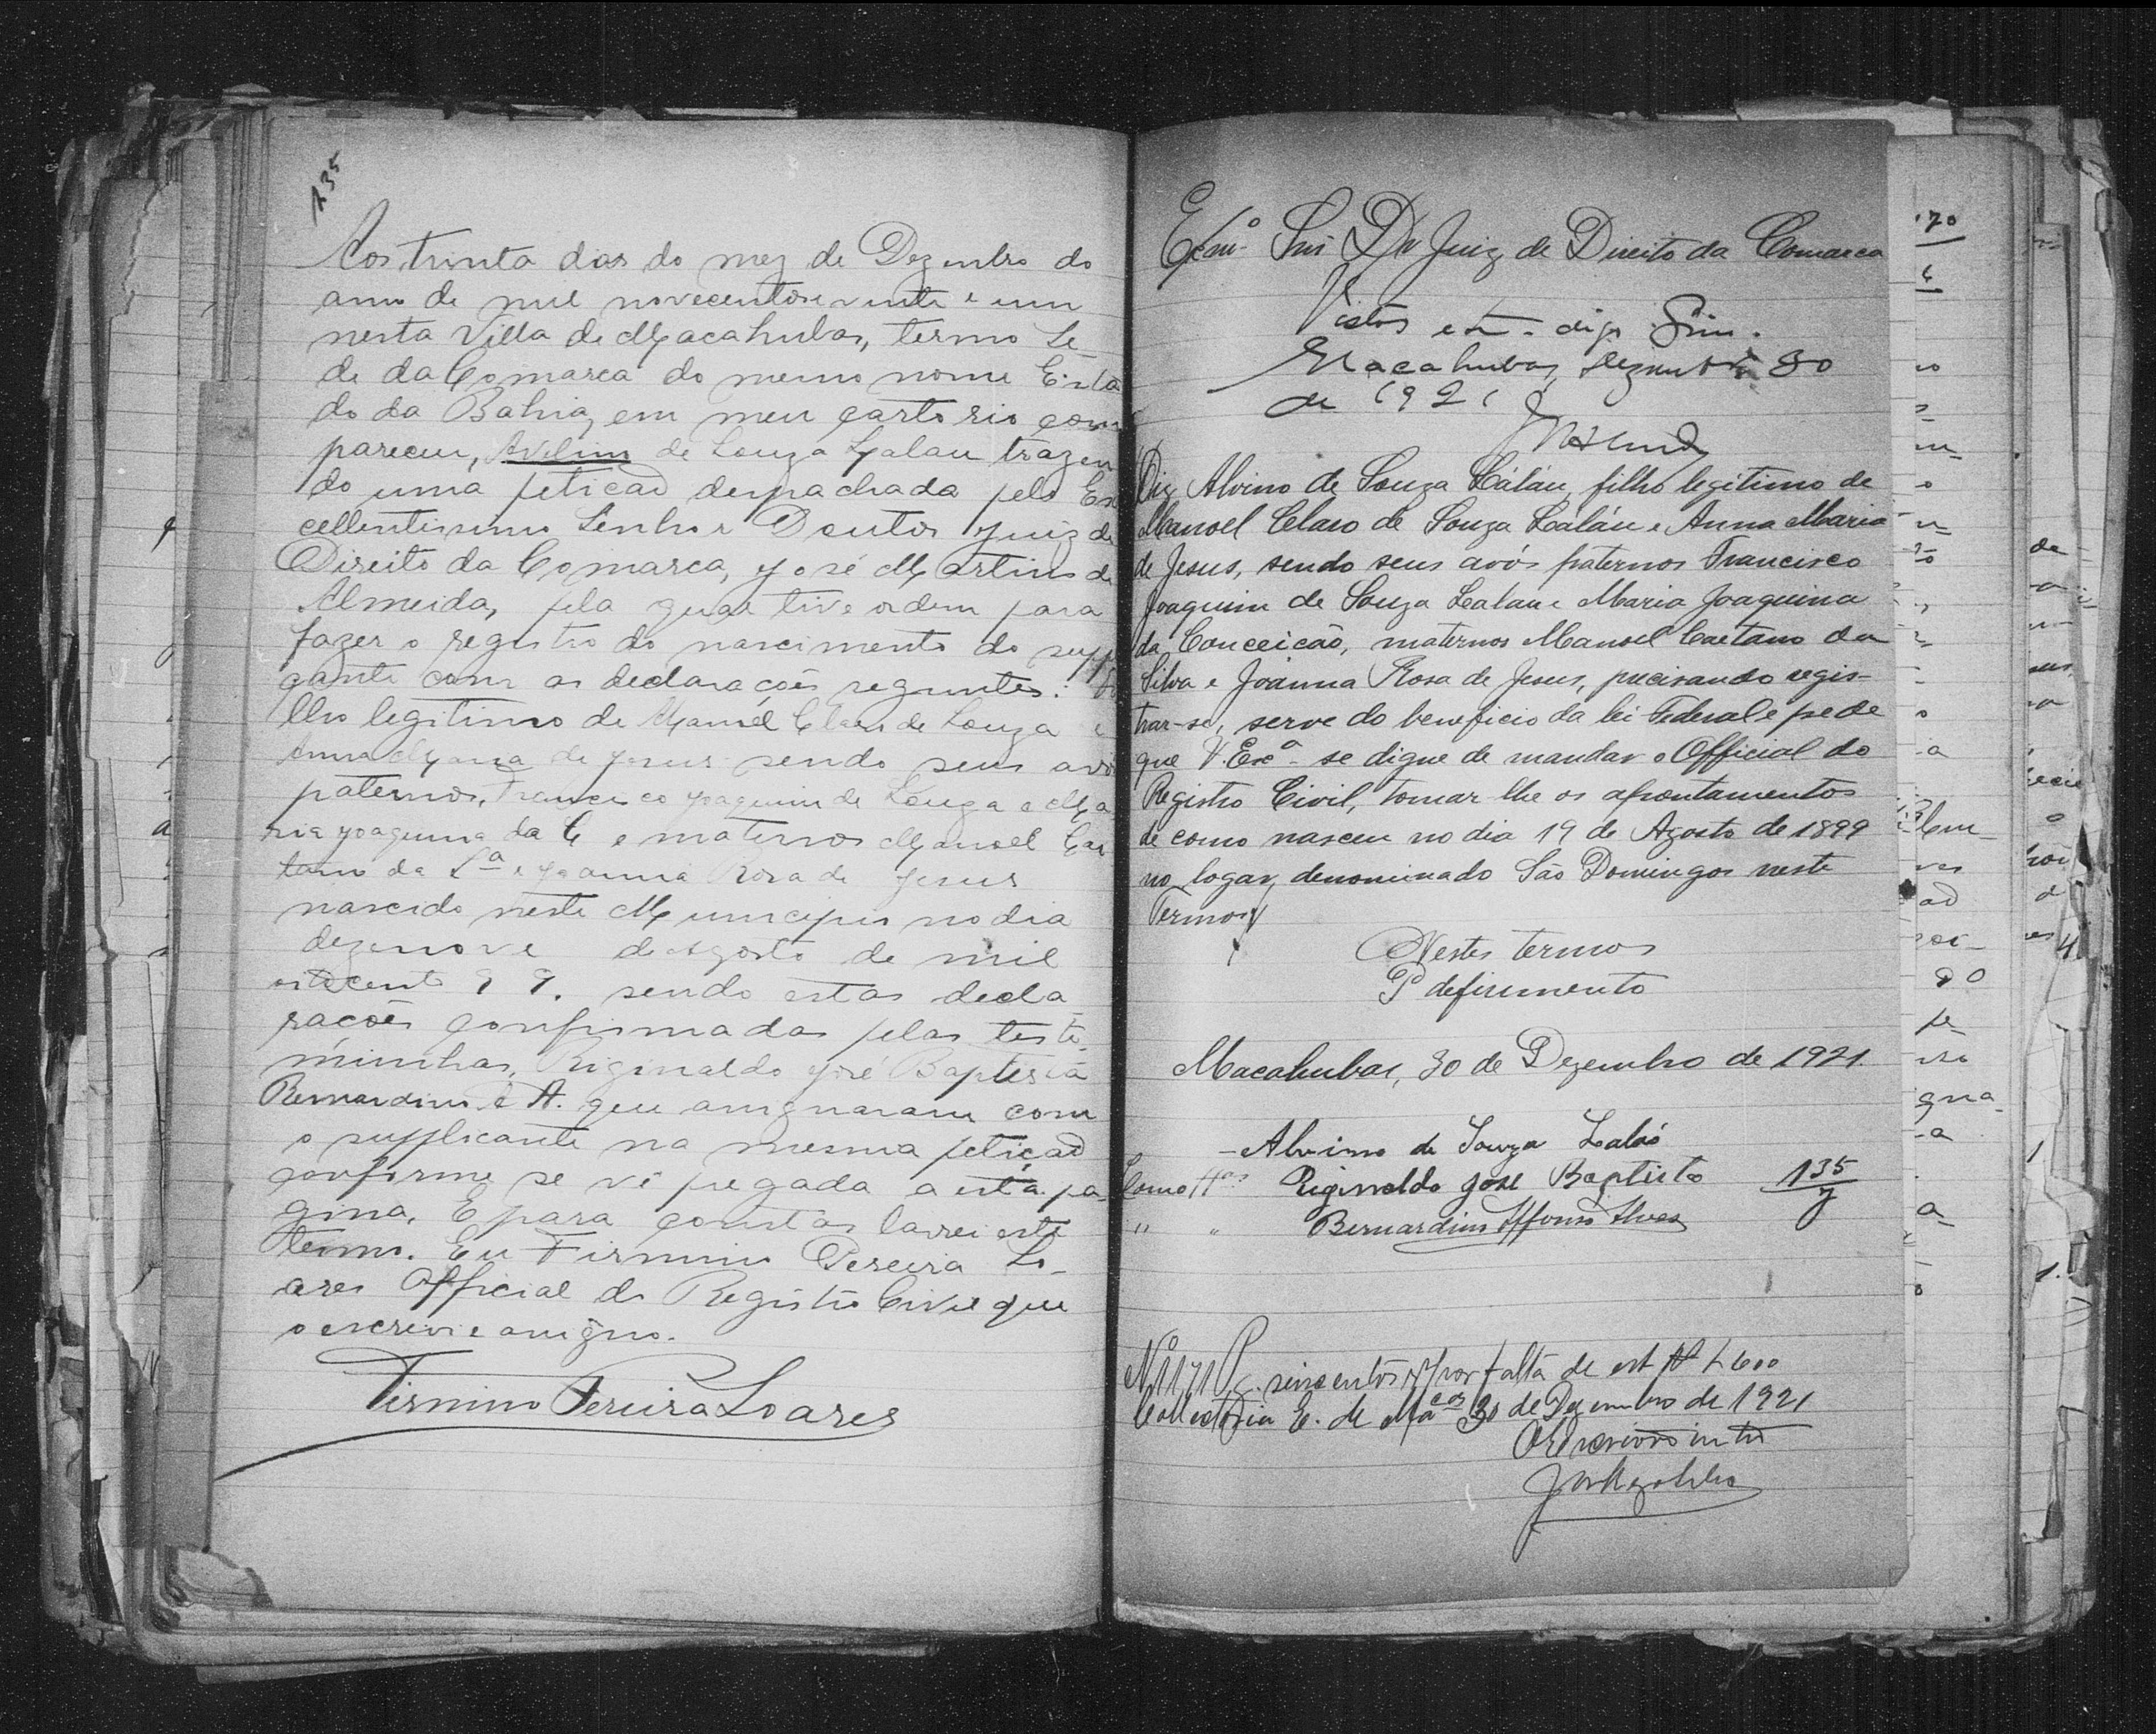 135
Aos trinta dias do mez de Dezembro do
anno de mil novecentos e vinte e um
nesta Villa de Macahubas, termo Se-
de da Comarca do mesmo nome Esta
do da Bahia, em meu cartorio com
pareceu, Avelino de Souza Lalau trazen
do uma petição despachada pelo Ex
cellentissimo Senhor Doutor Juiz de
Direito da Comarca, José Martins de
Almeida, pela qual tive ordem para
fazer o registro do nascimento do suppli
cante com as declarações seguintes: Fi
lho legitimo de Manoel Claro de Souza e
Anna Maria de Jesus sendo seus avós
paternos, Francisco Joaquim de Souza e Ma
ria Joaquina da C e maternos Manoel Cae
tano da Sª e Joanna Rosa de Jesus
nascido neste Municipio no dia
dezenove de Agosto de mil
oitocent 99. sendo estas decla-
rações confirmadas pelas teste-
minhas, Riginaldo José Baptista
Bernardino A. que assignaram com
o supplicante na mesma petição
conforme se vê pegada a esta pa-
gina, E para constar lavrei este
termo. Eu Firmino Pereira So-
ares Official do Registro Civil que
o escrevi e assigno.
Firmino Pereira Soares
Exmº Snr Dr Juiz de Direito da Comarca
Vistos digo Sim.
Macahubas, Dezembro 30
de 1921
Diz Alvino de Souza Laláu, filho legitimo de
Manoel Claro de Souza Laláu e Anna Maria
de Jesus, sendo seus avós paternos Francisco
Joaquim de Souza Lalau e Maria Joaquina
da Conceicão, maternos Manoel Caetano da
Silva e Joanna Rosa de Jesus, precisando regis-
trar-se, serve do beneficio da lei Federal e pede
que V. Excª se digne de mandar o Official do
Registro Civil, tomar-lhe os apontamentos
de como nasceu no dia 19 de Agosto de 1899
no logar, denominado São Domingos neste
Termo
Nestes termos
P deferimento
Macahubas, 30 de Dezembro de 1921.
Alvino de Souza Lalaó
Como ttas Riginaldo José Baptista 135
" " Bernardino Affonso Alves 7
Nº 1171 Pg. seiscentos rs por falta de est
Collectoria E. de Macas 30 de Dezembro de 1921
O Escrivão intº